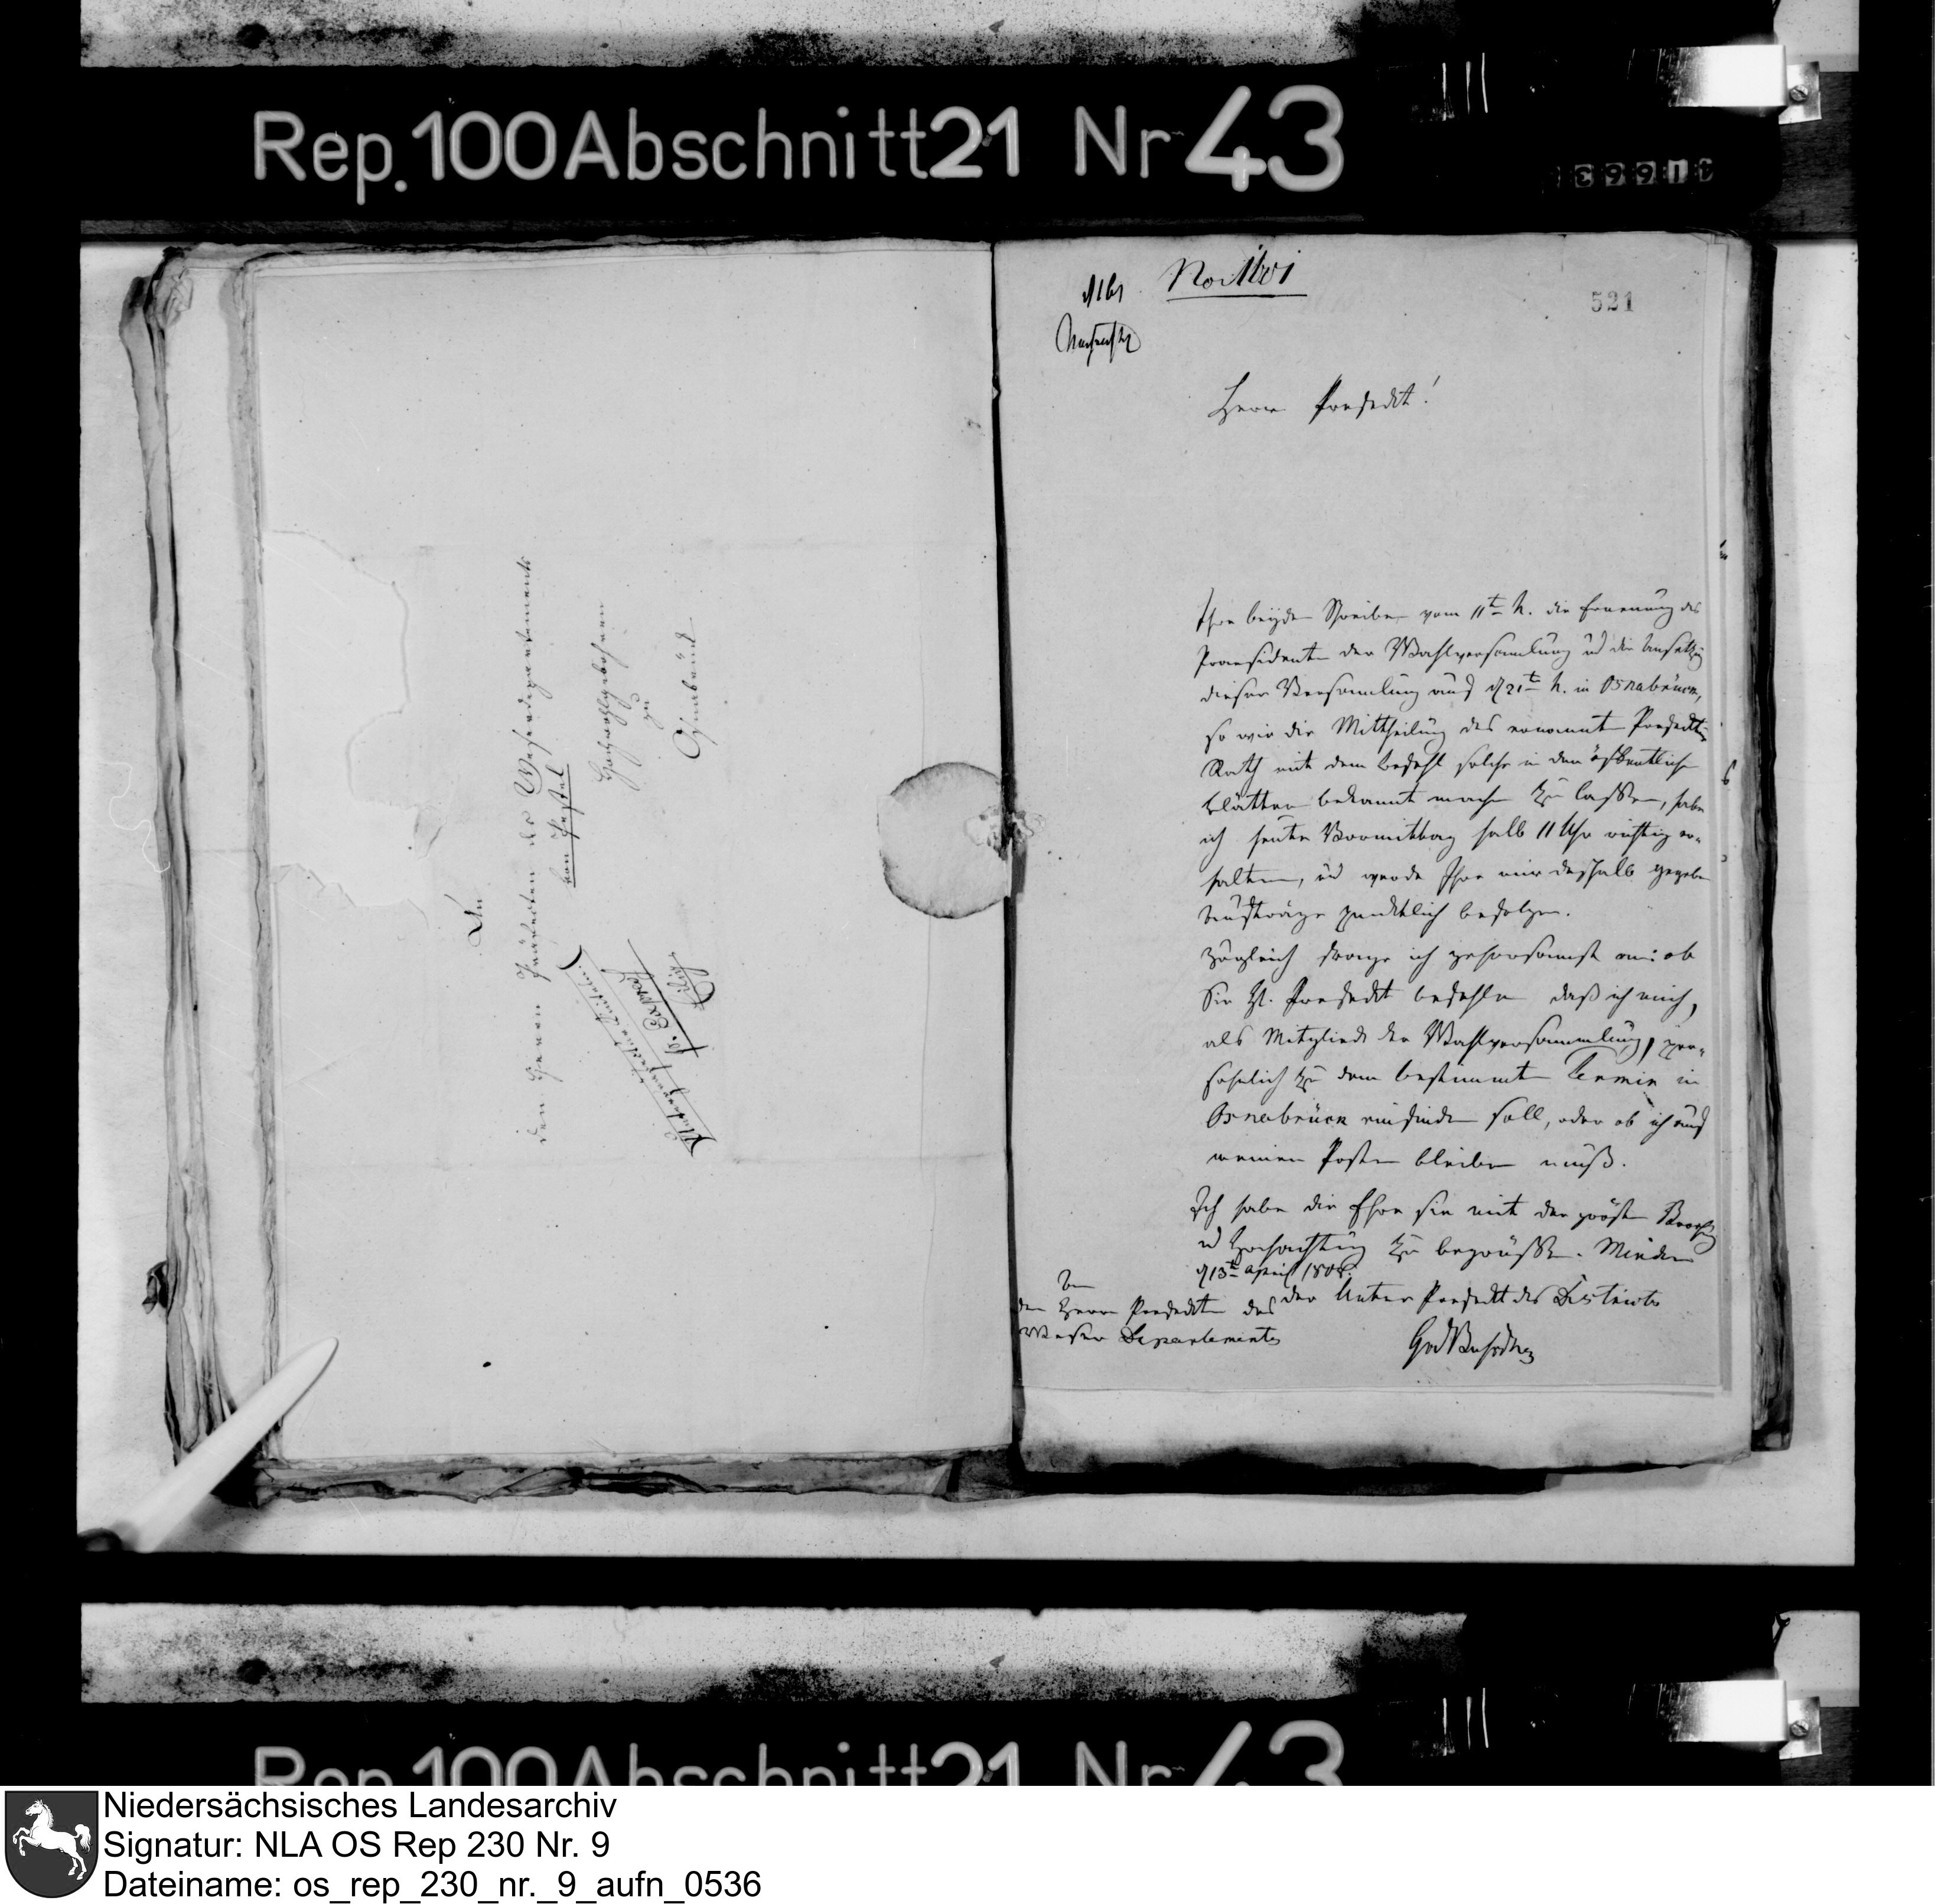 Rep. 100 Abschnitt 21 Nr 43
An
den Herrn Präfecten des Weserdepartements
von Pestel
Hochwohlgebohren
zu
Osnabrück
p. Expreß
Eilig
521
Herr Praefect!
Ihre beyden Schreiben vom 11t h. die Ernennung des
Praesidenten der Wahlversamlung und die Ansetzung
dieser Versamlung auf d 21t h. in Osnabrück,
so wie die Mittheilung des ernannten Praefectur
Rath mit dem Befehl solche in den öffentlichen
Blättern bekannt machen zu lassen, habe
ich heute Vormittag halb 11 Uhr richtig er-
halten, und werde Ihre mir deshalb gegebene
Aufträge punctlich befolgen.
Zugleich frage ich gehorsamst an: ob
Sie H. Praefect befehlen daß ich mich,
als Mitglied der Wahlversammlung, per-
söhnlich zu dem bestimmten Termin in
Osnabrück einfinden soll, oder ob ich auf
meinen Posten bleiben muß.
Ich habe die Ehre sie mit der größten Verehrung
und Hochachtung zu begrüßen. Minden
d 13t April 1808.
An
den Herrn Praefecten des
Weser Departements
der Unter Praefect des Districts
Rep. 100 Abschnitt 21 Nr 43
Niedersächsisches Landesarchiv
Signatur: NLA OS Rep 230 Nr. 9
Dateiname: os_rep_230_nr._9_aufn_0536